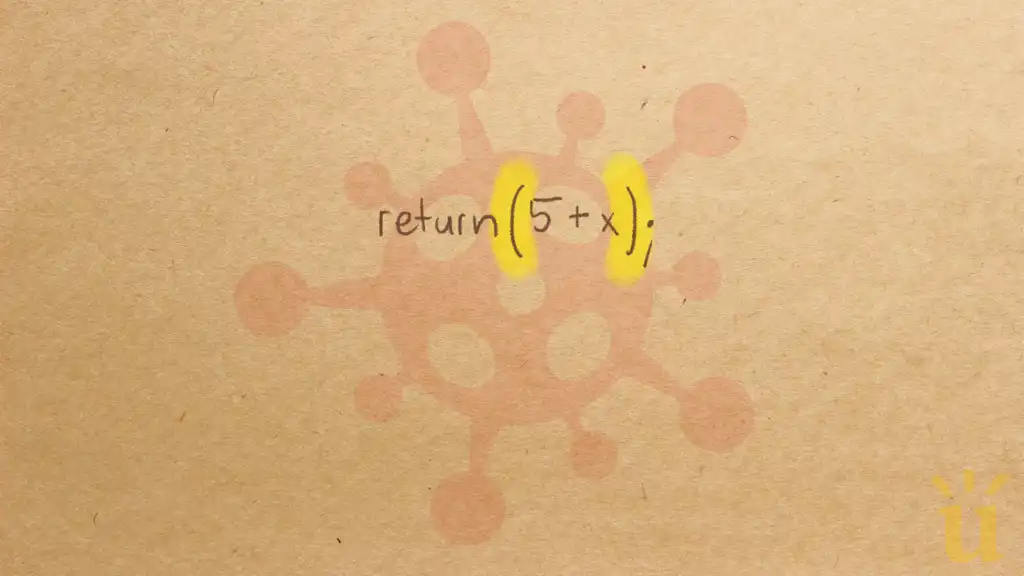 return(5+x);
u